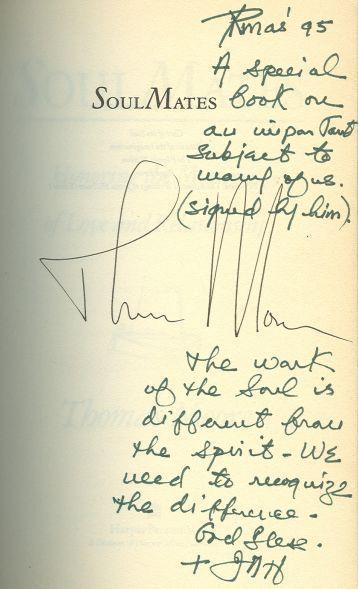 Xmas' 95
A special
SOULMATES book on
an important
subject to
many of us.
(signed by him).
Thomas Moore
The work
of the Soul is
different from
the spirit - We
need to recognize
the difference -
God bless.
+ JMH